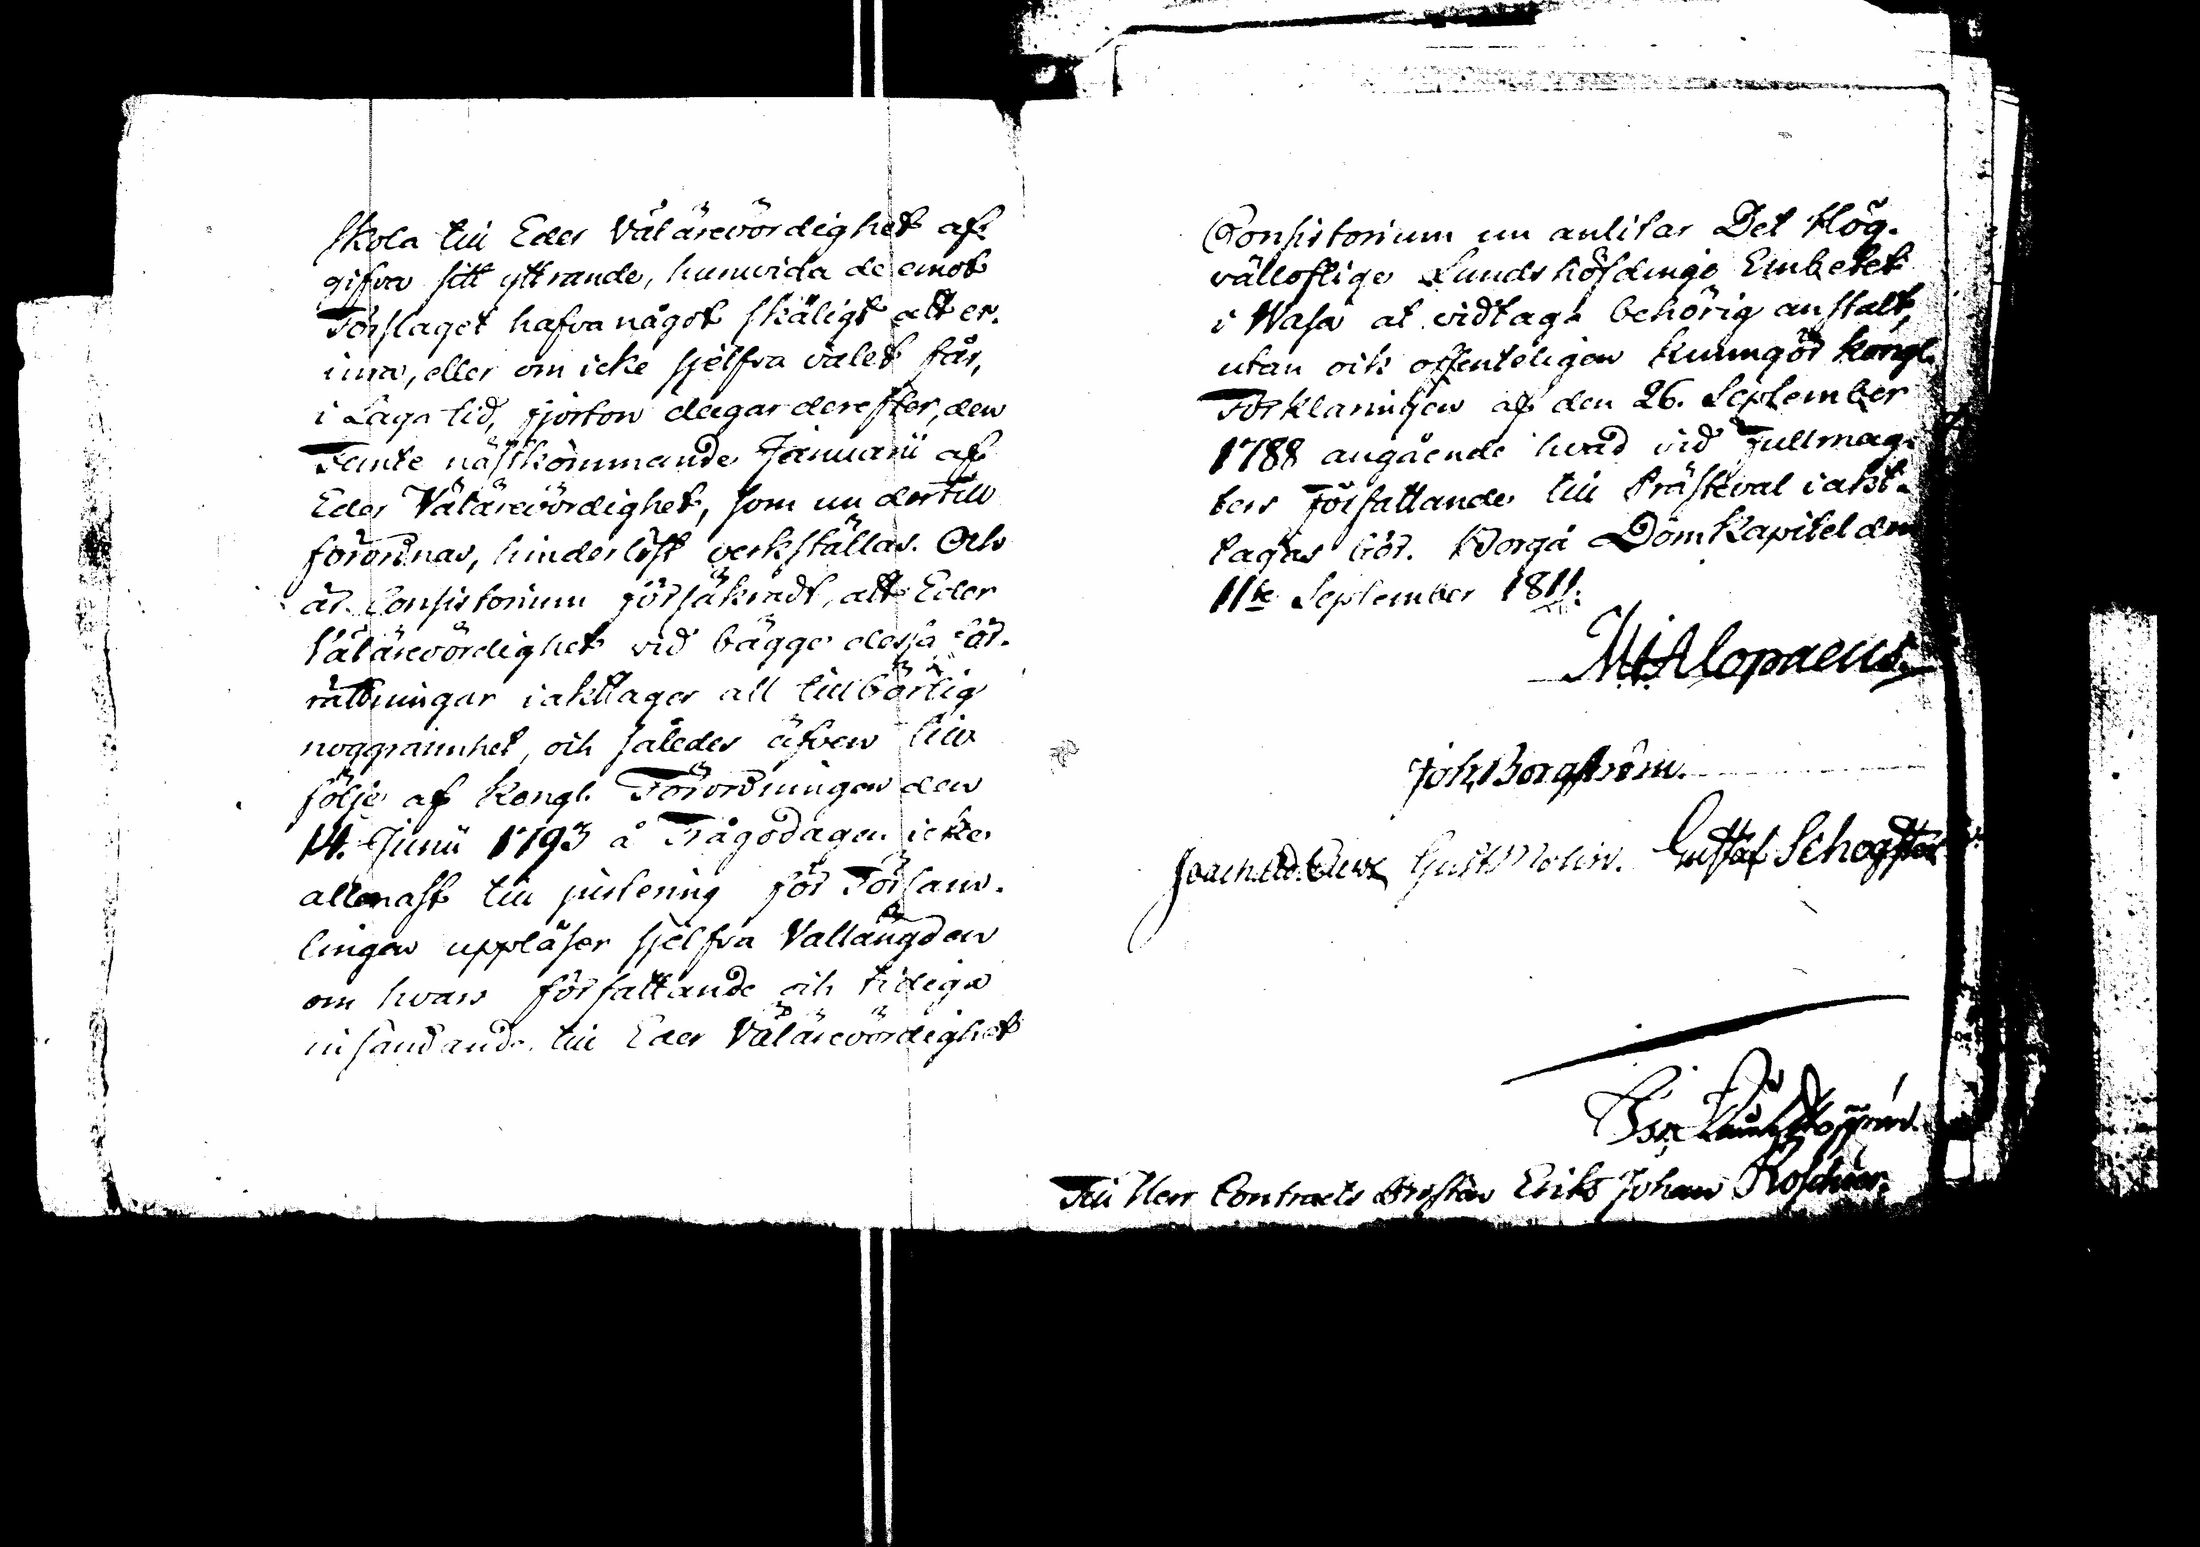 skola till Eder Välärevördighet af-
gifva sitt yttrande, huruvida de emot
Förslaget hafva något skäligt att er-
inra, eller om icke sjelfva valet får,
i Laga tid, fjorton dagar derefter, den
Femte nästkommande Januarii af
Eder Välärevördighet, som nu dertill
förordnas, hinderlöst verkställas. Och
är Consistorium försäkradt, att Eder
Välärevördighet vid bägge dessa för-
rättningar iakttager all tillbörlig
noggrannhet, och således äfven till
följe af Kongl. Förordningen den
14. Junii 1793 å Frågodagen icke
allenast till justering för Försam-
lingen uppläser sjelfva Vallängden
om hvars författande och tidiga
insändande till Eder Välärevördighet
Consistorium nu anlitar Det Hög-
välloflige Landshöfdinge Embetet
i Wasa at vidtaga behörig anstalt,
utan och offenteligen kungör Kongl.
Förklaringen af den 26. September
1788 angående hvad vid Fullmag-
ters författande till Prästeval iakt-
tagas bör. Borgå DomKapitel den
11te September 1811.
M. Alopaeus.
Joh. Borgström.
Gust. Molin. Gustaf
Till Herr Contracts Prosten Erik Johan Roschier.